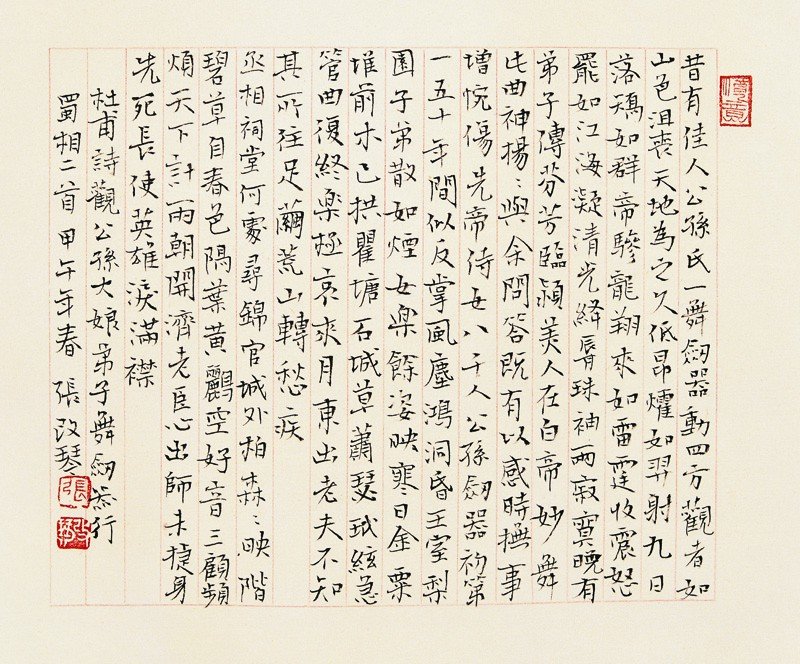 昔有佳人公孫氏一舞劍器動四方觀者如
山色沮喪天地為之久低昂燿如羿射九日
落矯如群帝驂龍翔來如雷霆收震怒
罷如江海凝清光絳脣珠袖兩寂寞晚有
弟子傳芬芳臨潁美人在白帝妙舞
此曲神揚〻與余問答既有以感時撫事
增惋傷先帝侍女八千人公孫劍器初第
一五十年間似反掌風塵鴻洞昏王室梨
園子弟散如煙女樂餘姿映寒日金粟
堆前木已拱瞿塘石城草蕭瑟玳絃急
管曲復終樂極哀來月東出老夫不知
其所往足繭荒山轉愁疾
丞相祠堂何處尋錦官城外柏森〻映階
碧草自春色隔葉黃鸝空好音三顧頻
煩天下計兩朝開濟老臣心出師未捷身
先死長使英雄淚滿襟
杜甫詩觀公孫大娘弟子舞劍器行
蜀相二首 甲午年春 張改琴
張